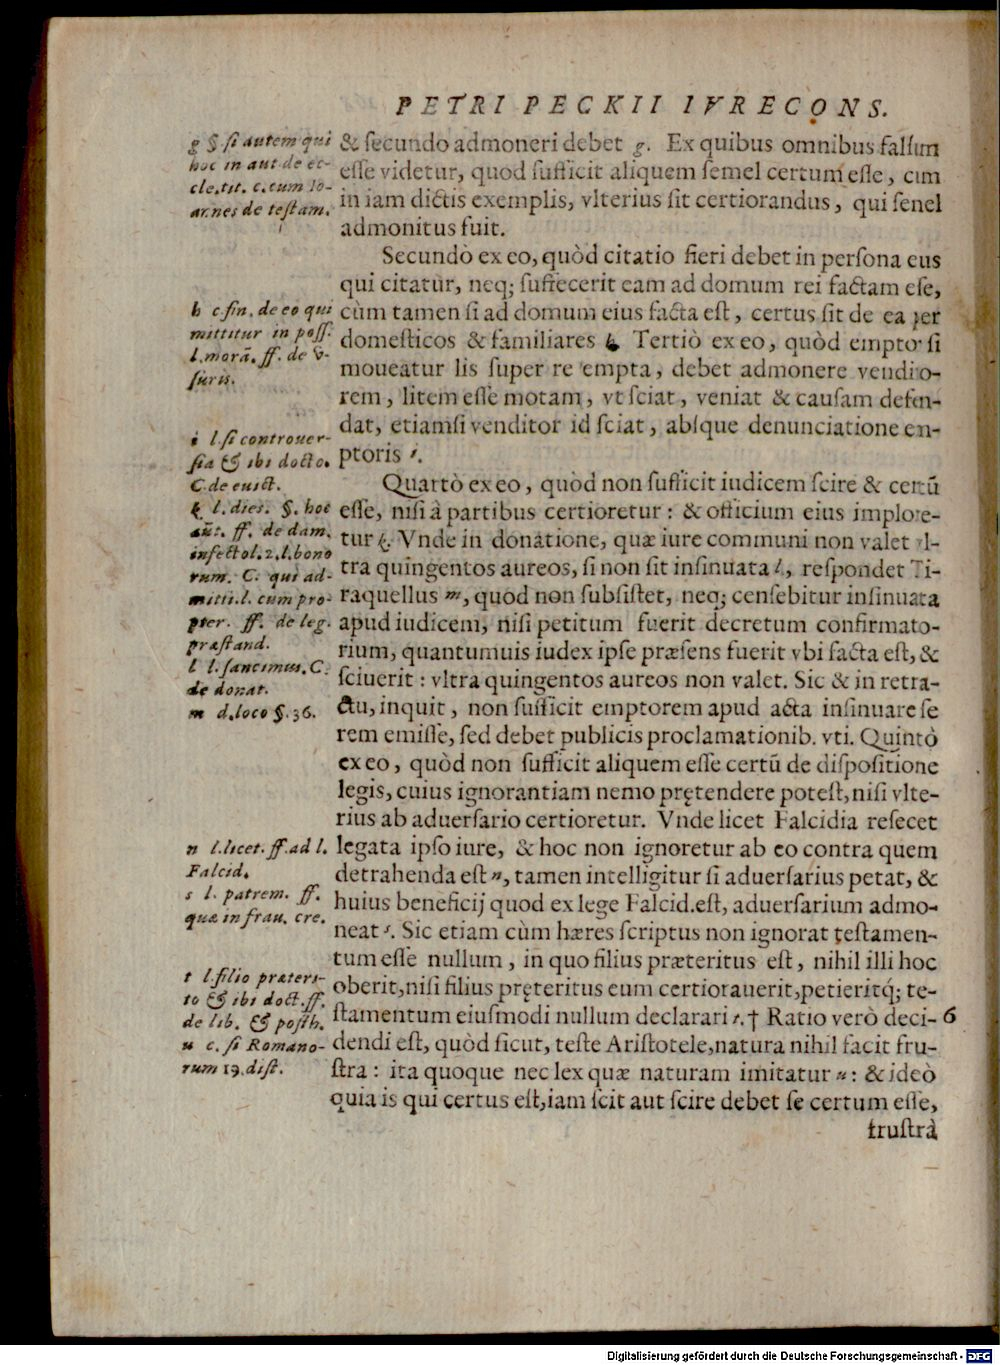 PETRI PECKII IVRECONS.
g §. ſi autem qui
hoc in aut de ec-
cle. tit. c. cum Io-
annes de teſtam.
h c. fin. de eo qui
mittitur in poſſ.
l. morā. ff. de v-
ſuris.
i l. ſi controuer-
ſia & ibi docto.
C. de euict.
k l. dies. §. hoc
aūt. ff. de dam.
infecto l. 2. l. bono
rum. C. qui ad-
mitti. l. cum pro-
pter. ff. de leg.
præſtand.
l l. ſancimus. C.
de donat.
m d. loco §. 36.
n l. licet. ff. ad l.
Falcid.
s l. patrem. ff.
quæ in frau. cre.
t l. filio præteri-
to & ibi doct. ff.
de lib. & poſth.
u c. ſi Romano-
rum 19. diſt.
& ſecundo admoneri debet g. Ex quibus omnibus falſum
eſſe videtur, quod ſufficit aliquem ſemel certum eſſe, cum
in iam dictis exemplis, vlterius ſit certiorandus, qui ſemel
admonitus fuit.
Secundò ex eo, quòd citatio fieri debet in perſona eius
qui citatur, neq; ſuffecerit eam ad domum rei factam eſſe,
cùm tamen ſi ad domum eius facta eſt, certus ſit de ea per
domeſticos & familiares h. Tertiò ex eo, quòd emptor ſi
moueatur lis ſuper re empta, debet admonere vendito-
rem, litem eſſe motam, vt ſciat, veniat & cauſam defen-
dat, etiamſi venditor id ſciat, abſque denunciatione em-
ptoris i.
Quartò ex eo, quòd non ſufficit iudicem ſcire & certū
eſſe, niſi à partibus certioretur: & officium eius implore-
tur k. Vnde in donatione, quæ iure communi non valet vl-
tra quingentos aureos, ſi non ſit inſinuata l, reſpondet Ti-
raquellus m, quod non ſubſiſtet, neq; cenſebitur inſinuata
apud iudicem, niſi petitum fuerit decretum confirmato-
rium, quantumuis iudex ipſe præſens fuerit vbi facta eſt, &
ſciuerit: vltra quingentos aureos non valet. Sic & in retra-
ctu, inquit, non ſufficit emptorem apud acta inſinuare ſe
rem emiſſe, ſed debet publicis proclamationib. vti. Quintò
ex eo, quòd non ſufficit aliquem eſſe certū de diſpoſitione
legis, cuius ignorantiam nemo prętendere poteſt, niſi vlte-
rius ab aduerſario certioretur. Vnde licet Falcidia reſecet
legata ipſo iure, & hoc non ignoretur ab eo contra quem
detrahenda eſt n, tamen intelligitur ſi aduerſarius petat, &
huius beneficij quod ex lege Falcid. eſt, aduerſarium admo-
neat s. Sic etiam cùm hæres ſcriptus non ignorat teſtamen-
tum eſſe nullum, in quo filius præteritus eſt, nihil illi hoc
oberit, niſi filius pręteritus eum certiorauerit, petieritq́; te-
ſtamentum eiuſmodi nullum declarari t. † Ratio verò deci- 6
dendi eſt, quòd ſicut, teſte Ariſtotele, natura nihil facit fru-
ſtra: ita quoque nec lex quæ naturam imitatur u: & ideò
quia is qui certus eſt, iam ſcit aut ſcire debet ſe certum eſſe,
fruſtrà
Digitalisierung gefördert durch die Deutsche Forschungsgemeinschaft - DFG